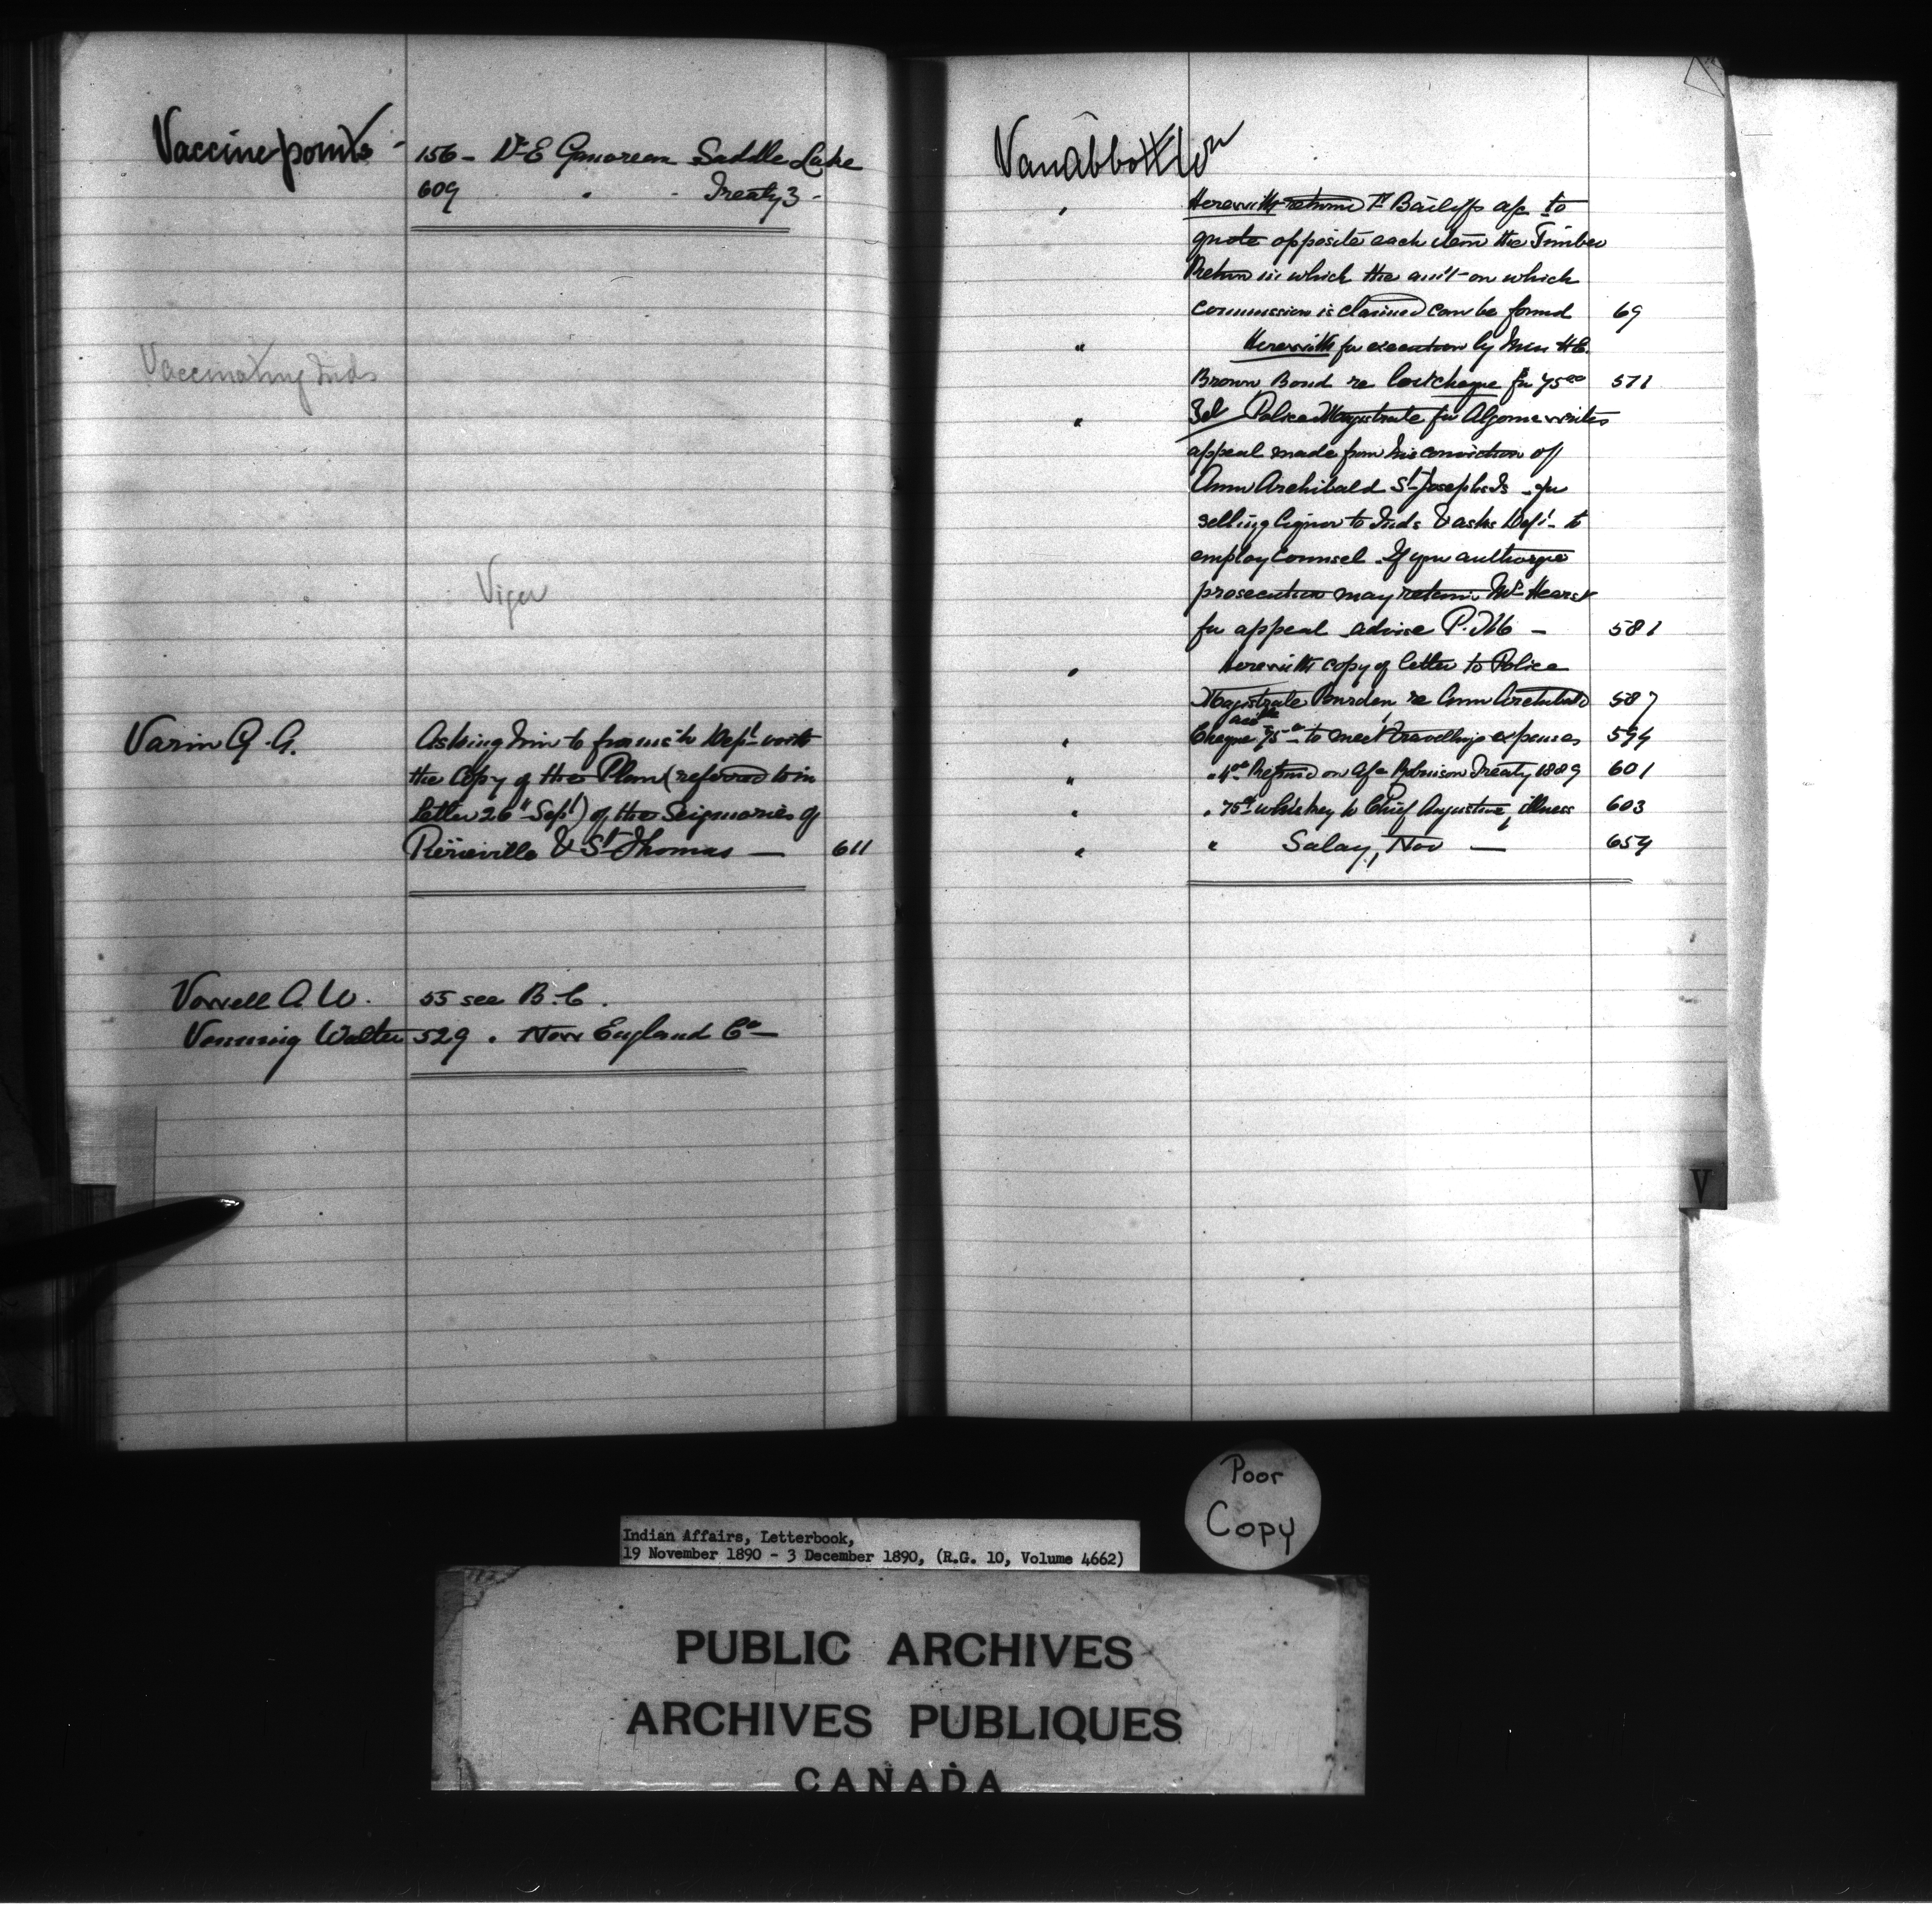 Vaccine points - 156 - Dr E Saddle Lake
609 " - Treaty 3 -
Vaccinating Inds
Viger
Varin G. A. Asking him to furnish Dept with
the Copy of the Plan (referred to in
letter 26" Sept) of the Seigniories of
Pierreville & St Thomas — 611
Vowell A. W. 55 see B.C.
Venning Walter 529 . New England Co —
VanAbbott Wm
" Herewith return T. Bailiffs a/c to
quote opposite each item the Timber
Return in which the am't on which
Commission is claimed can be found 69
" Herewith for execution by Mrs H.C.
Brown Bond re lost cheque for 75 00 571
" Tel Police Magistrate for Algoma writes
appeal made from his conviction of
Ann Archibald St Josephs Is for
selling liquor to Inds & asks Dept to
employ Counsel. If you authorize
prosecution may retain Mr Hearst
for appeal advise P. M — 581
" Herewith copy of letter to Police
Magistrate re Ann Archibald 587
" Cheque 75 to meet travelling expenses 594
" " 4 00 Refund on a/c Robinson Treaty 1889 601
" " 75 cts whiskey to Chief Augustine, illness 603
" " Salary, Nov — 654
V
Poor
Copy
Indian Affairs, Letterbook,
19 November 1890 - 3 December 1890, (R.G. 10, Volume 4662)
PUBLIC ARCHIVES
ARCHIVES PUBLIQUES
CANADA